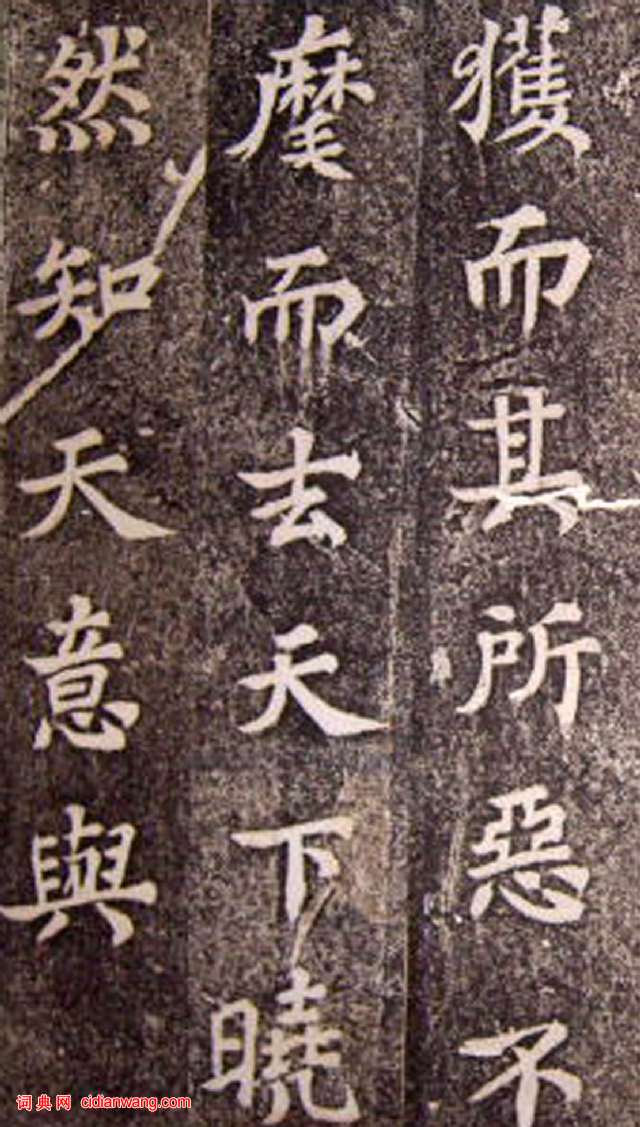 獲而其所惡不
麾而去天下曉
然知天意與
词典网 cidianwang.com